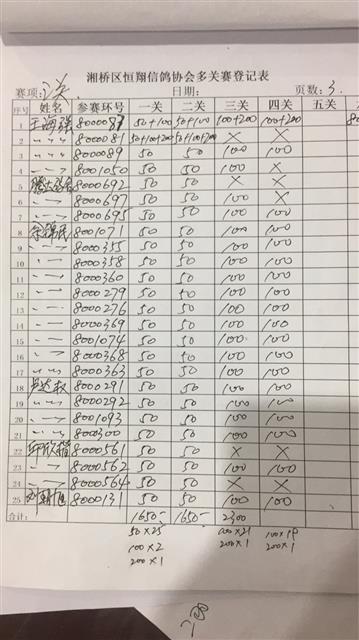 湘桥区恒翔信鸽协会多关赛登记表
赛项: 关 日期: 页数: 3.
序号 姓名 参赛环号 一关 二关 三关 四关 五关
1 王海强 8000087 50+100 50+100 100+200 100+200
2 〃 〃 〃 8000081 50+100+200 50+100+200 × ×
3 〃 〃 〃 8000089 50 50 100 100
4 〃 〃 8001050 50 50 100 ×
5 8000692 50 50 × ×
6 〃 〃 8000697 50 50 100 ×
7 〃 〃 8000695 50 50 100 100
8 8001071 50 50 100 100
9 〃 〃 8000355 50 50 100 100
10 〃 〃 8000358 50 50 100 100
11 〃 〃 8000360 50 50 100 100
12 〃 〃 8000279 50 50 100 100
13 〃 〃 8000276 50 50 100 100
14 〃 〃 8000369 50 50 100 100
15 〃 〃 8001074 50 50 100 100
16 〃 〃 8000368 50 50 100 100
17 〃 〃 8000363 50 50 100 100
18 8000291 50 50 100 100
19 〃 〃 〃 8000292 50 50 100 100
20 〃 〃 8001093 50 50 100 100
21 〃 〃 〃 8000300 50 50 100 100
22 8000561 50 50 × ×
23 〃 〃 8000562 50 50 100 100
24 〃 〃 8000564 50 50 × ×
25 8000131 50 50 100 100
合计: 1650- 1650- 2300
50×25 100×21 100×19
100×2 200×1 200×1
200×1